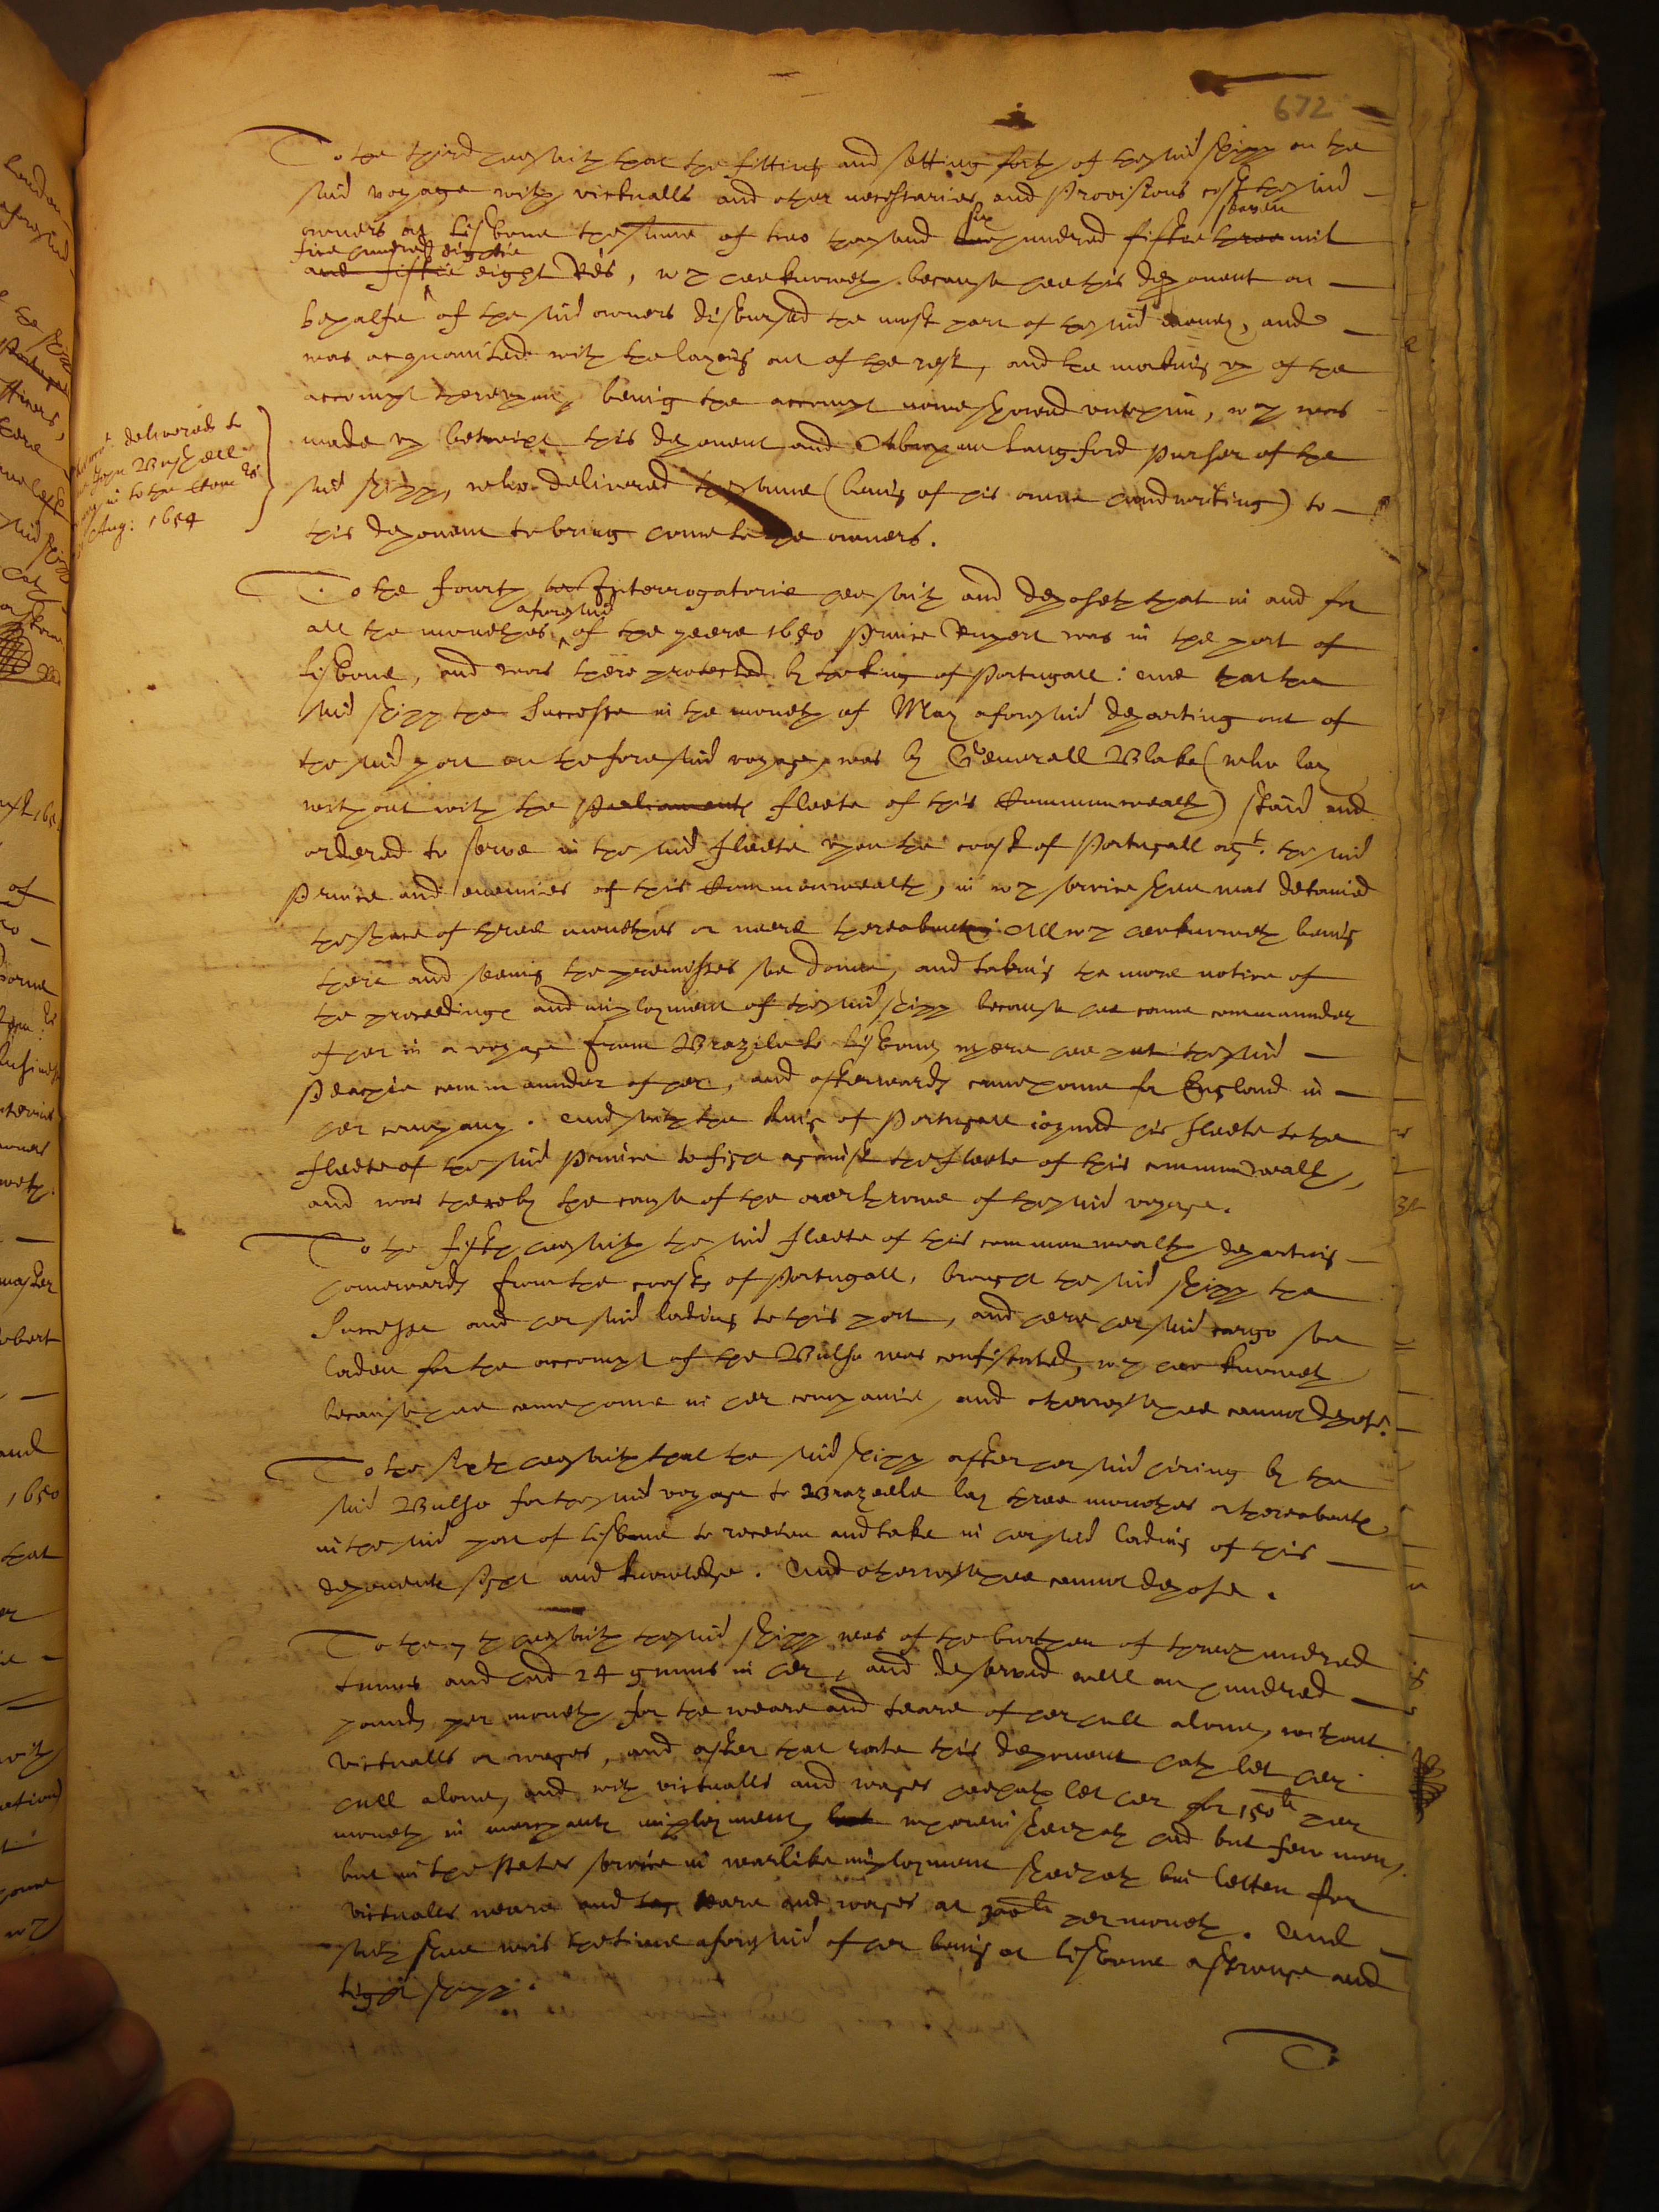 672
To the third hee saith that the fitting and setting forth of the said shipp on the
said voyage with victualls and other necessaries and Provisions cost the said
owners at Lisbone the summe of two thousand six hundred fiftie three seaven mil
and fiftie five hundred eightie eight Re's, wch hee knoweth because hee this deponent on
behalfe of the said owners disbursed the most part of the said money, and
was acquainted with the layeing out of the rest, and the making up of the
accompt thereupon, being the accompt nowe shewed unto him, wch was
made up betwixt this deponent and Abraham Langford Purser of the
said shipp, who delivered the same (being of his owne handwriting) to
this deponent to bring home to the owners.
delivered to
John Bushell
in to the Com
Aug: 1654
To the fourth Interrogatorie hee saith and deposeth that in and for
all the monethes aforesaid of the yeere 1650 Prince Rupert was in the port of
Lisbone, and was there protected by the king of Portugall: and that the
said shipp the Successe in the moneth of May aforesaid departing out of
the said port on the foresaid voyage, was by Generall Blake (who lay
without with the Parliaments fleete of this Commonwealth) staid and
ordered to serve in the said fleete upon the coast of Portugall agt. the said
Prince and enemies of this Commonwealth, in wch service shee was detained
the space of three monethes or neere thereabouts. All wch hee knoweth being
there and seeing the premisses soe donne, and taking the more notice of
the proceedings and imployment of the said shipp because hee came commannder
of her in a voyage from Brazile to Lisbone, where hee put the said
Pearcie commannder of her, and afterwards came home for England in
her company. And saith the king of Portugall joyned his fleete to the
fleete of the said Prince to fight against the fleete of this commonwealth,
and was thereby the cause of the overthrowe of the said voyage.
To the fifth hee saith the said fleete of this commonwealth departing
homewards from the coasts of Portugall, brought the said shipp the
Successe and her said lading to this port, and here her said cargo soe
laden for the accompt of the Bulse was confiscated, wch hee knoweth
because hee came home in her companie, and otherwise hee cannot depose.
To the sixth hee saith that the said shipp after her said hiring by the
said Bulse for the said voyage to Brazeele lay three monethes or thereabouts
in the said port of Lisbone to receive and take in her said lading of this
deponents sight and knowledge. And otherwise hee cannot depose.
To the 7th hee saith the said shipp was of the burthen of three hundred
tunnes and had 24 gunns in her, and deserved well an hundred
pounds per moneth for the weare and teare of her hull alone, without
victualls or wages, and after that rate this deponent hath let her
hull alone, and with victualls and wages hee hath let her for 150li per
moneth in merchants imployment, wherein shee hath had but fewe men,
but in the states service in warlike imployment shee hath bin letten for
victualls weare and teare and wages at per moneth. And
saith shee was the time aforesaid of her being at Lisbone a stronge and
tight shipp.